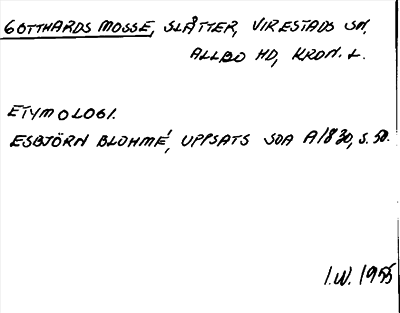 GOTTHARDS MOSSE, SLÅTTER, VIRESTADS SN,
ALLBO HD, KRON. L.
ETYMOLOGI.
ESBJÖRN BLOHMÉ, UPPSATS SOA A1830, S. 50.
I.W. 1955